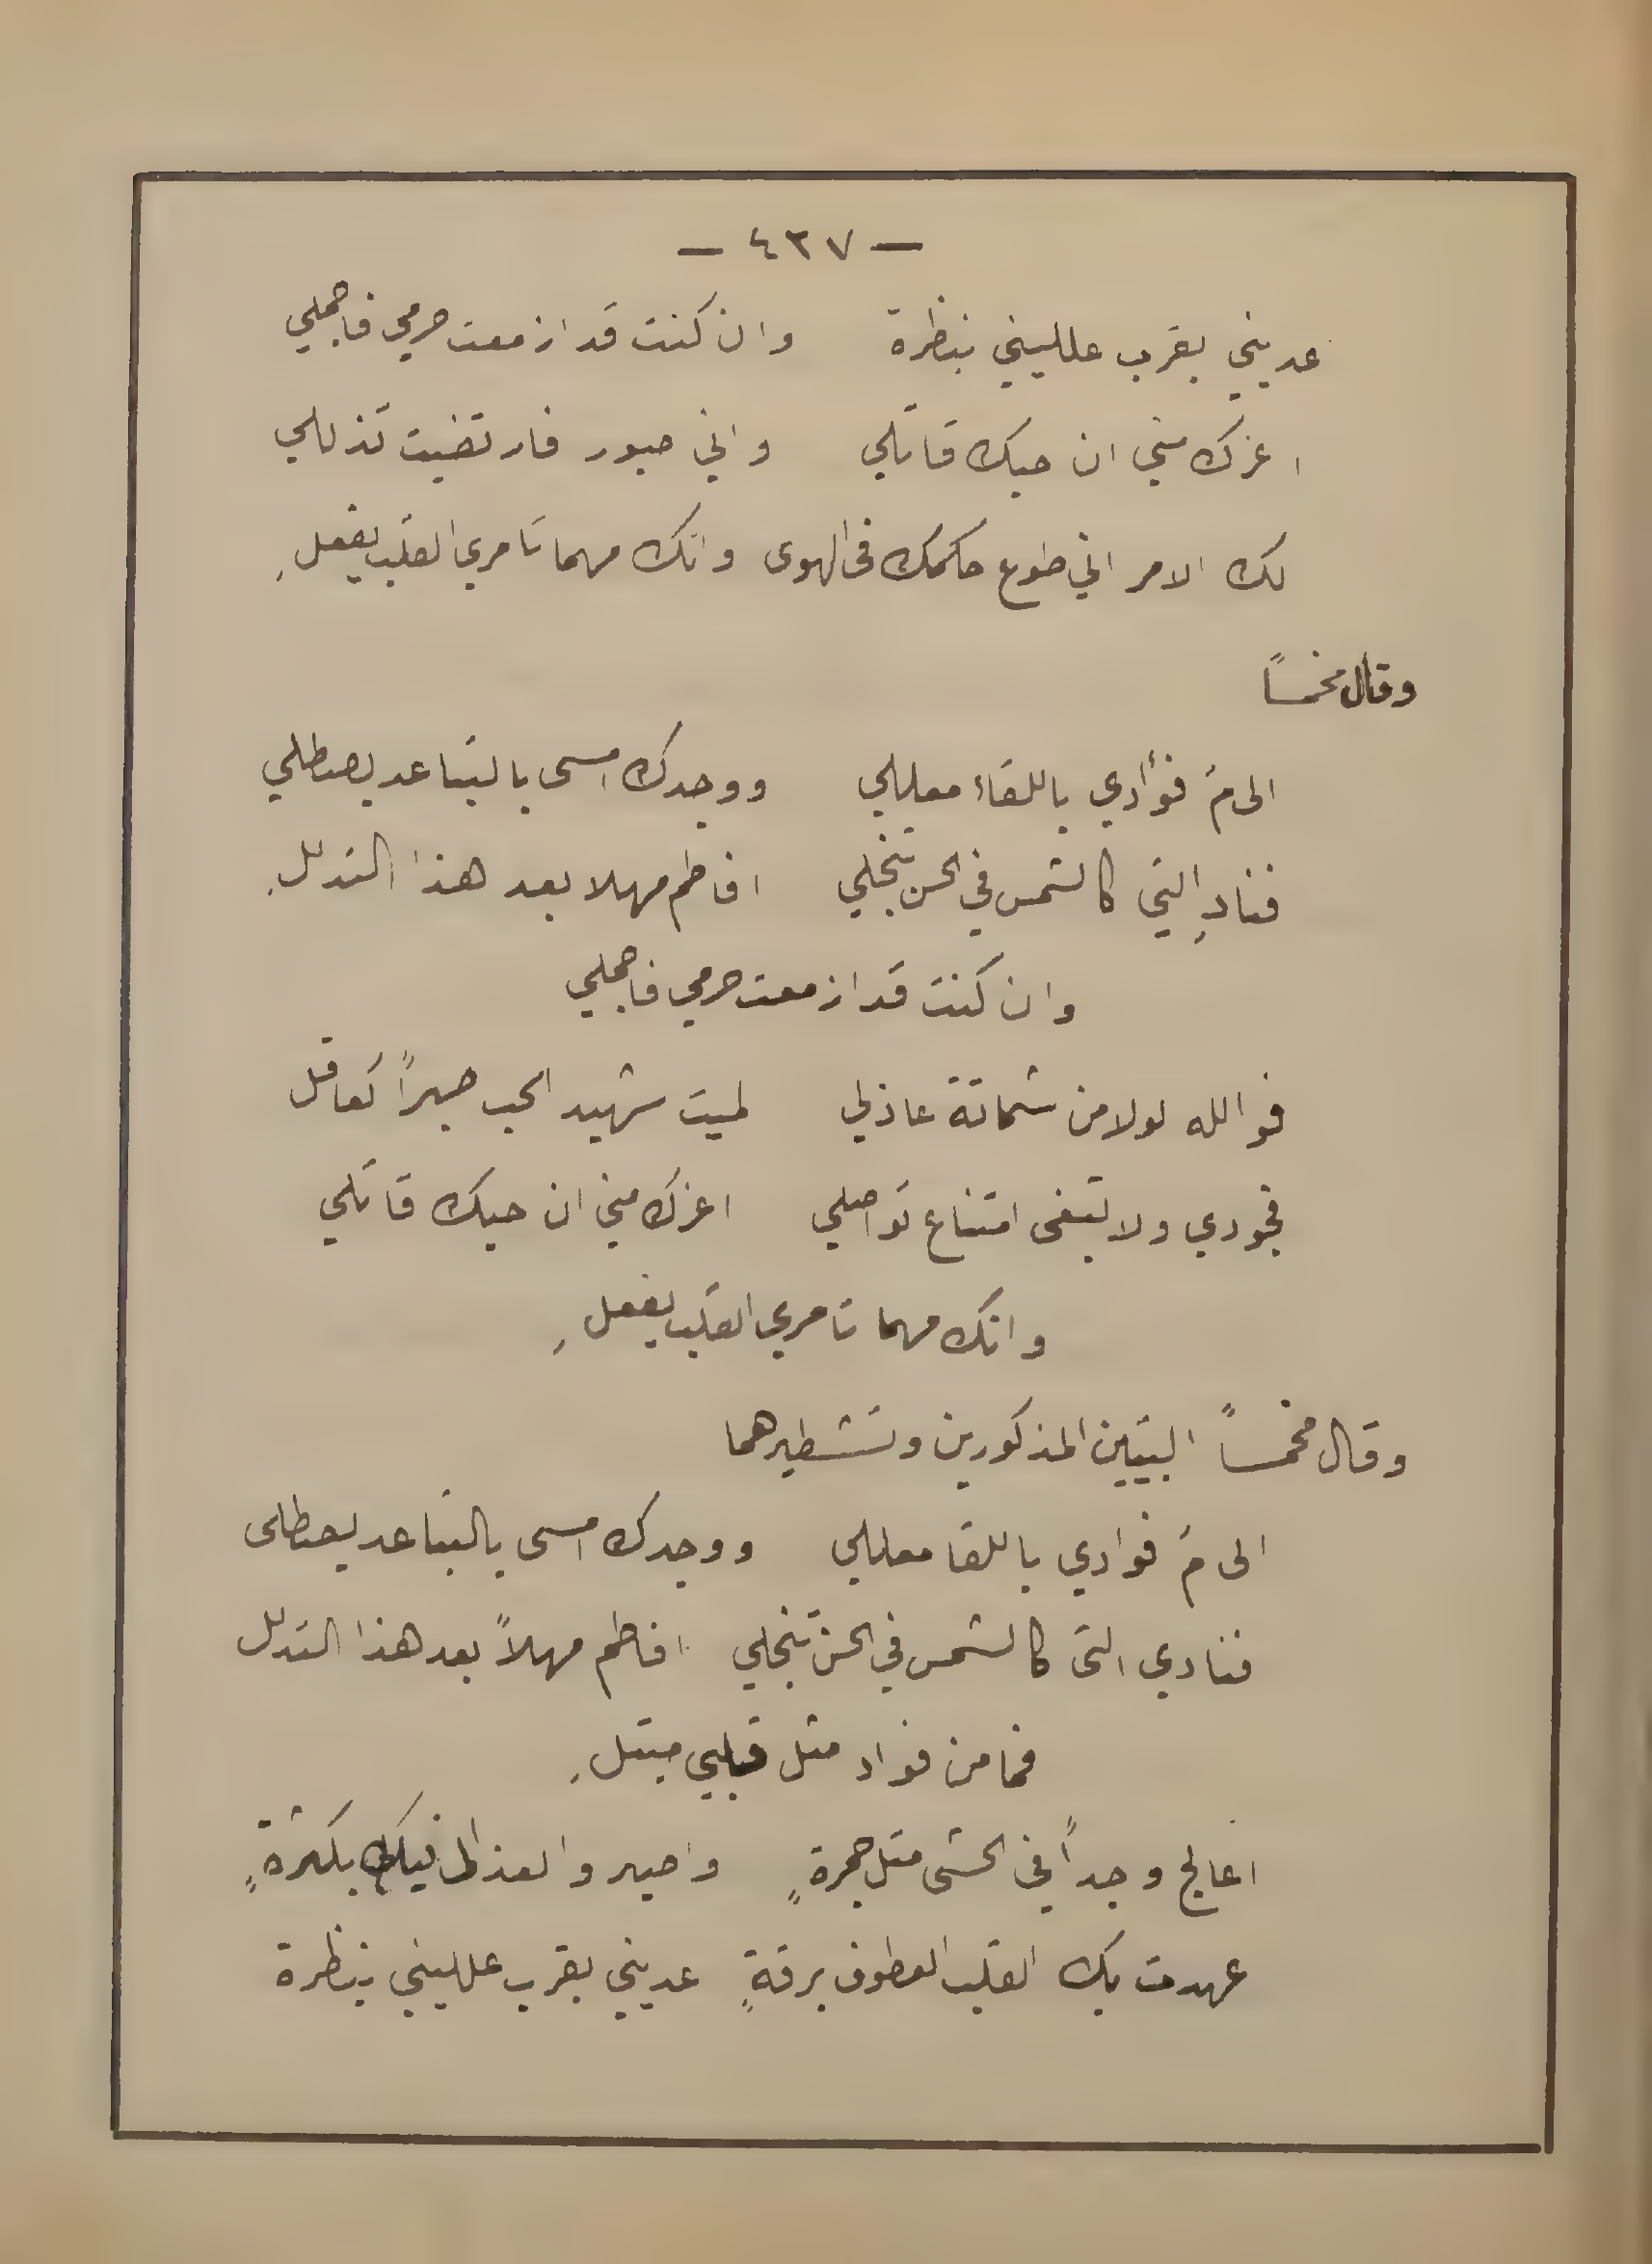 — ٤٢٧ —
عديني بقرب علليني بنظرة وان كنت قد ازمعت صرمي فاجملي
اغرك مني ان حبك قاتلي واني صبور فارتضيت تذللي
لك الامر اني طوع حكمك في الهوى وانك مهما تامري القلب يفعلِ
وقال مخمساً
الى مَ فؤادي باللقاء معللي ووجدك امسى بالتباعد يصطلي
فنادِ التي كالشمس في الحسن تنجلي افاطم مهلا بعد هذا التدللِ
وان كنت قد ازمعت صرمي فاجملي
فو الله لولا من شماتة عاذلي لميت شهيد الحب صبراً كعاقل
فجودي ولا تبغى امتناع تواصلي اغرك مني ان حبك قاتلي
وانك مهما تامري القلب يفعلِ
وقال مخمساً البيتين المذكورين وتشطيرهما
الى مَ فوادي باللقا معللي ووجدك امسى بالتباعد يصطلى
فنادي التى كالشمس في الحسن تنجلي افاطم مهلاً بعد هذا التدلل
فما من فواد مثل قلبي مبتلِ
اعالج وجداً في الحشى مثل جمرةٍ واصبر والعذال فيك بكثرةٍ
عهدت بك القلب العطوف برقةٍ عديني بقرب علليني بنظرة